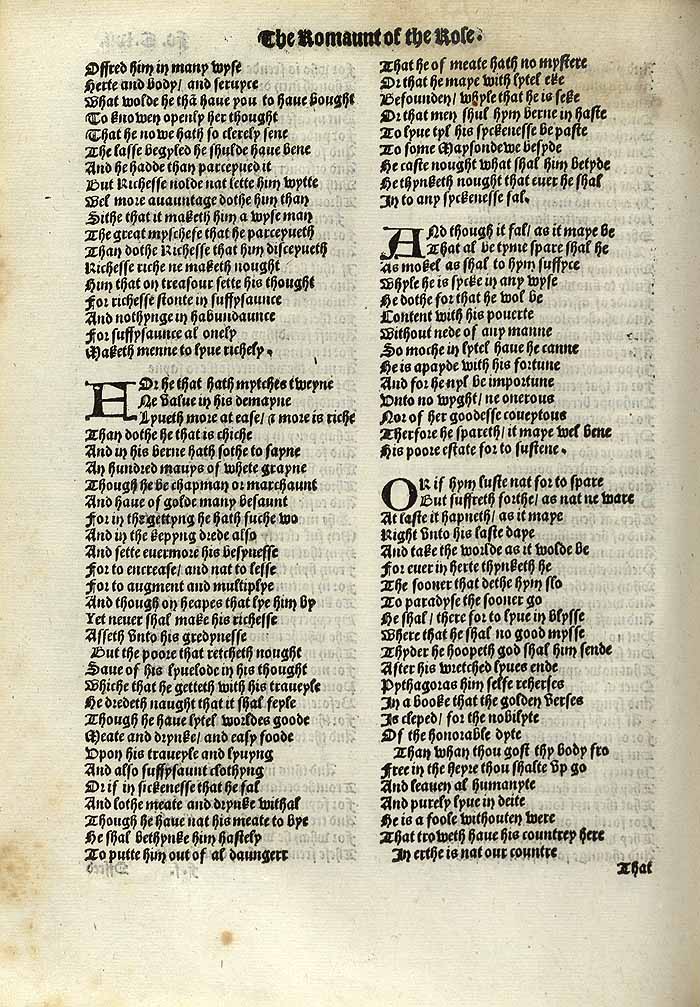 The Romaunt of the Rose.
Offred him in many wyse
Herte and body/ and seruyce
What wolde he thā haue you to haue bought
To knowen openly her thought
That he nowe hath so clerely sene
The lasse begyled he shulde haue bene
And he hadde than parceyued it
But Richesse nolde nat lette him wytte
Wel more auauntage dothe him than
Sithe that it maketh him a wyse man
The great myschefe that he parceyueth
Than dothe Richesse that him disceyueth
Richesse riche ne maketh nought
Him that on treasour sette his thought
For richesse stonte in suffysaunce
And nothynge in habundaunce
For suffysaunce al onely
Maketh menne to lyue richely.
FOr he that hath mytches tweyne
Ne value in his demayne
Lyueth more at ease/ & more is riche
Than dothe he that is chiche
And in his berne hath sothe to sayne
An hundred mauys of whete grayne
Though he be chapman or marchaunt
And haue of golde many besaunt
For in the gettyng he hath suche wo
And in the kepyng drede also
And sette euermore his besynesse
For to encrease/ and nat to lesse
For to augment and multiplye
And though on heapes that lye him by
Yet neuer shal make his richesse
Asseth vnto his gredynesse
But the poore that retcheth nought
Saue of his lyuelode in his thought
Whiche that he getteth with his traueyle
He dredeth naught that it shal feyle
Though he haue lytel worldes goode
Meate and drynke/ and easy foode
Vpon his traueyle and lyuyng
And also suffysaunt clothyng
Or if in sickenesse that he fal
And lothe meate and drynke withal
Though he haue nat his meate to bye
He shal bethynke him hastely
To putte him out of al daungere
That he of meate hath no mystere
Or that he maye with lytel eke
Be founden/ whyle that he is seke
Or that men shul hym berne in haste
To lyue tyl his syckenesse be paste
To some Maysondewe besyde
He caste nought what shal him betyde
He thynketh nought that euer he shal
In to any syckenesse fal.
ANd though it fal/ as it maye be
That al be tyme spare shal he
As mokel as shal to hym suffyce
Whyle he is sycke in any wyse
He dothe for that he wol be
Content with his pouerte
Without nede of any manne
So moche in lytel haue he canne
He is apayde with his fortune
And for he nyl be importune
Vnto no wyght/ ne onerous
Nor of her goodesse coueytous
Therfore he spareth/ it maye wel bene
His poore estate for to sustene.
OR if hym luste nat for to spare
But suffreth forthe/ as nat ne ware
At laste it hapneth/ as it maye
Right vnto his laste daye
And take the worlde as it wolde be
For euer in herte thynketh he
The sooner that dethe hym slo
To paradyse the sooner go
He shal/ there for to lyue in blysse
Where that he shal no good mysse
Thyder he hoopeth god shal him sende
After his wretched lyues ende
Pythagoras him selfe reherses
In a booke that the golden verses
Is cleped/ for the nobilyte
Of the honorable dyte
Than whan thou gost thy body fro
Free in the heyre thou shalte vp go
And leauen al humanyte
And purely lyue in deite
He is a foole withouten were
That troweth haue his countrey here
In erthe is nat our countre
That